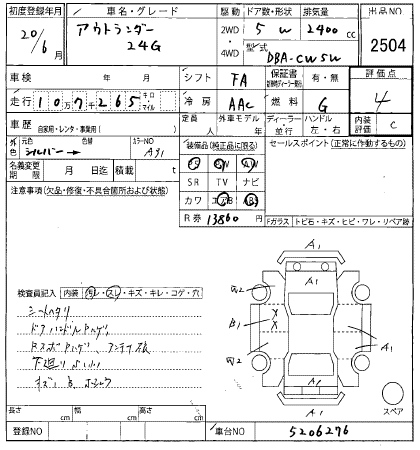 初度登録年月 車名・グレード 駆動 ドア数・形状 排気量 出品NO
20/6月 アウトランダー 24G 2WD・4WD 5 W 2400 cc 2504
型式 DBA-CW5W
車検 年 月 シフト FA 保証書 有・無 評価点 4
走行 10万7千265 キロ マイル 冷房 AAC 燃料 G
車歴 自家用・レンタ・事業用( ) 定員 人 外車モデル 年 ディーラー・並行 ハンドル 左・右 内装 C
外色 元色 シルバー→ 色替 カラーNO A31
装備品(純正品に限る) セールスポイント(正常に作動するもの)
名義変更期限 月 日迄 積載 t
PS PW AW
SR TV ナビ
カワ エアB AB
R券 13860 円
注意事項(欠品・修復・不具合箇所および状態)
Fガラス トビ石・キズ・ヒビ・ワレ・リペア跡
検査員記入 内装 汚レ・スレ・キズ・キレ・コゲ・穴
シートヘタリ
A1
A1
W2
B1
X
X
W2
A1
A1
A1
A1
スペア
長さ cm 幅 cm 高さ cm
登録NO 車台NO 5206276